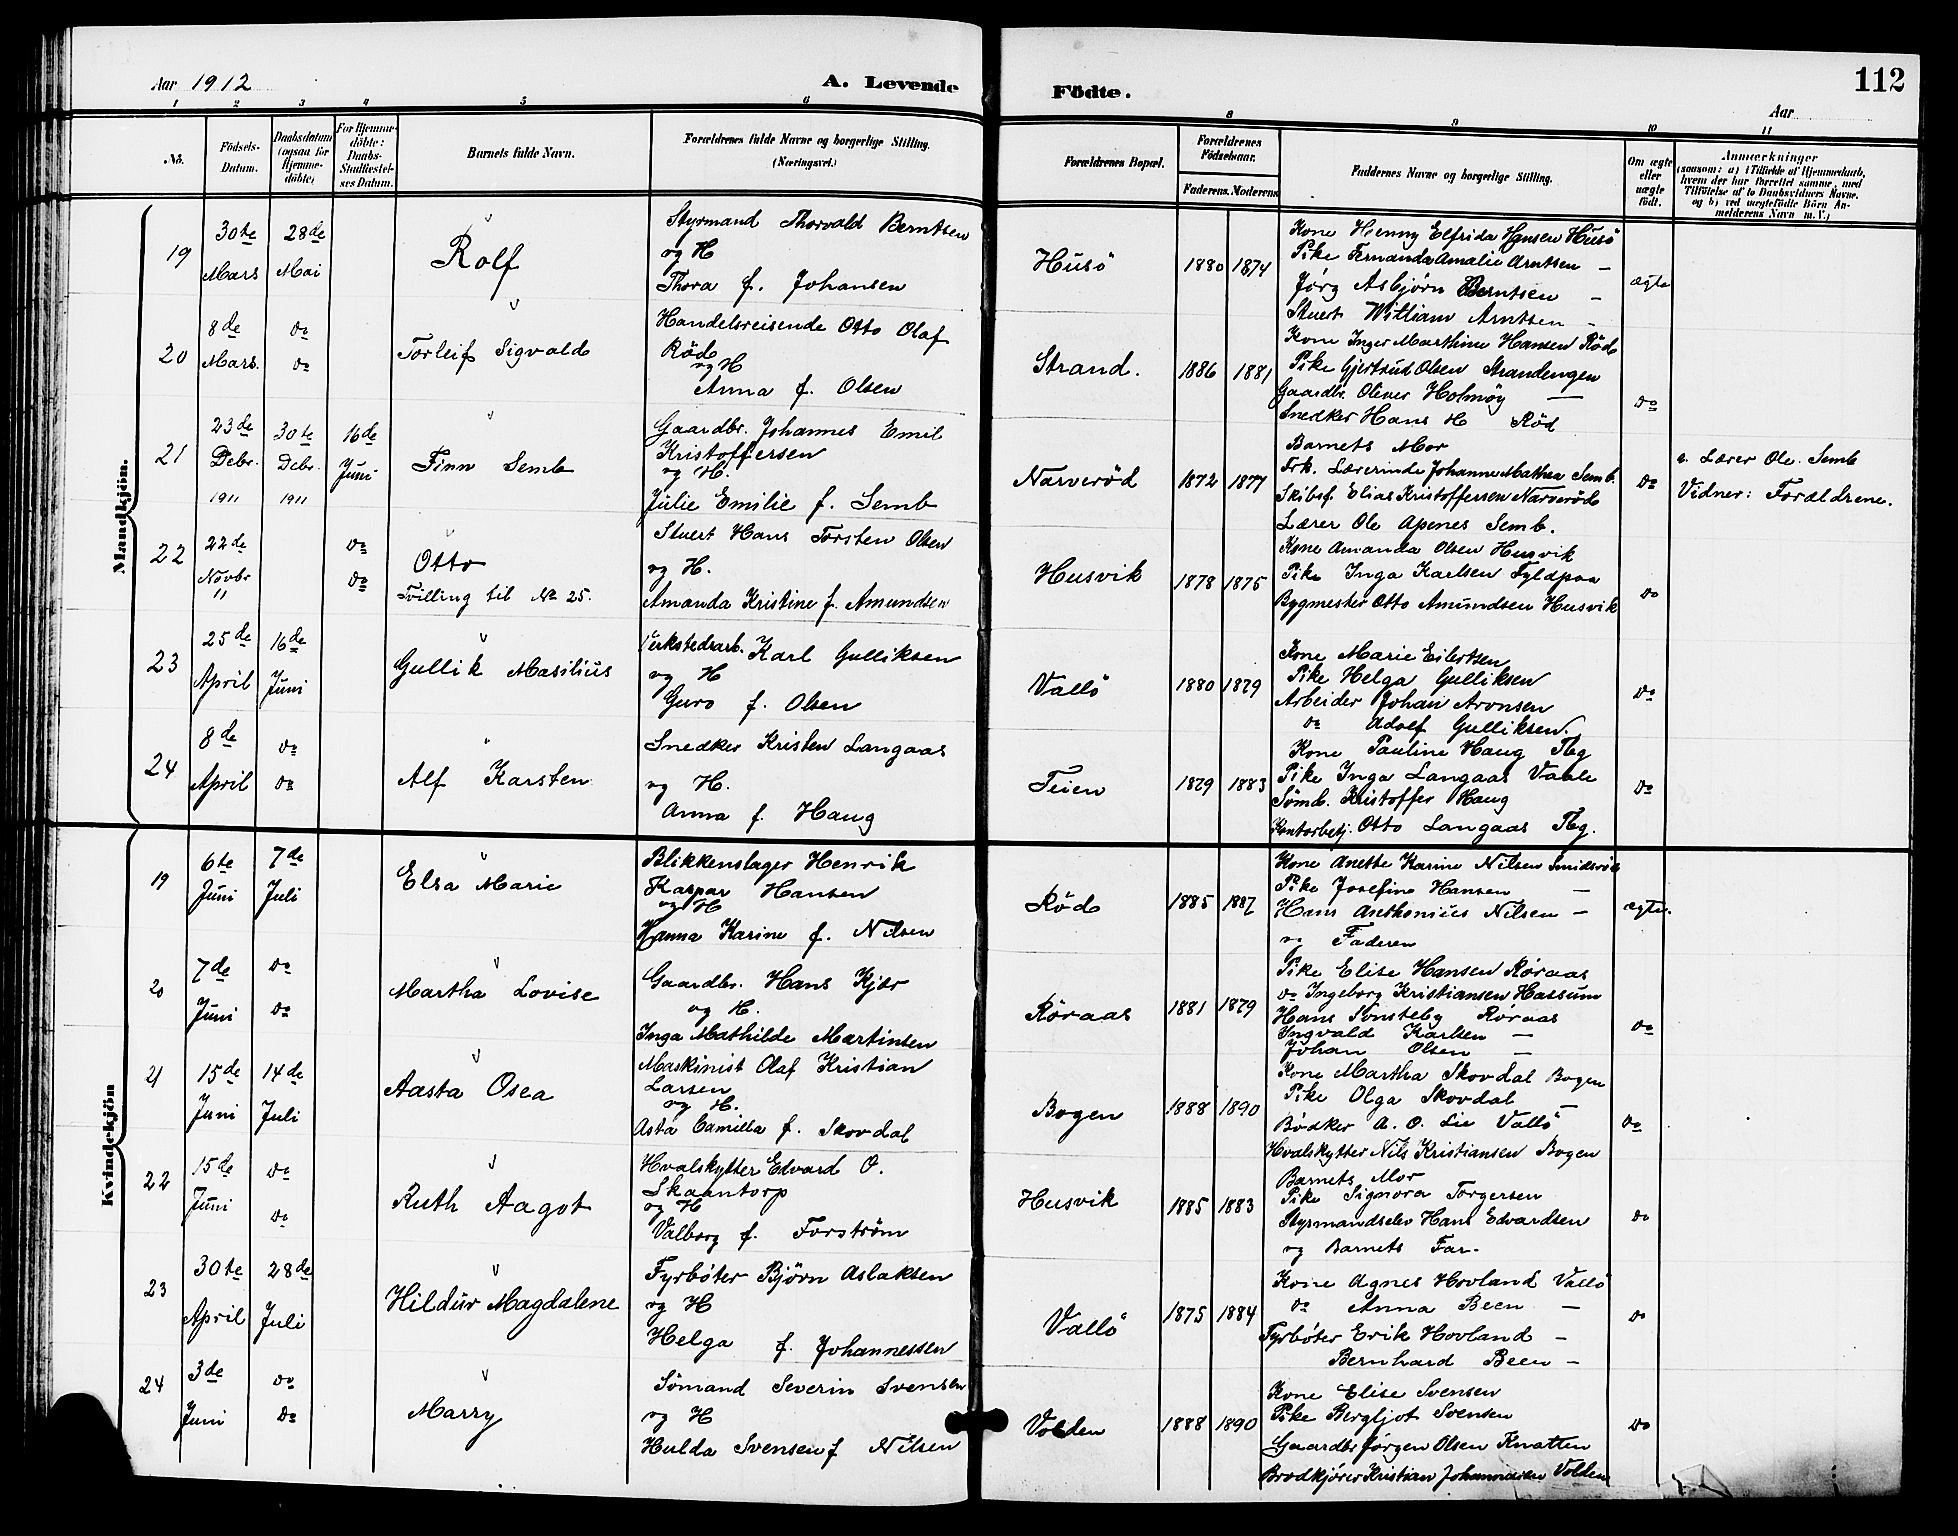 Aar 1912
A. Levende
Födte.
112
Aar
1 2 3 4 5 6 8 9 10 11
Nö.
Födsels-Datum.
Daabsdatum (ogsaa for Hjemme-döbte)
For Hjemme-döbte: Daabs-Stadfæstel-ses Datum.
Barnets fulde Navn.
Forældrenes fulde Navne og borgerlige Stilling.
(Næringsvei.)
Forældrenes Bopæl.
Forældrenes Födselsaar.
Faderens. Moderens.
Faddernes Navne og borgerlige Stilling.
Om ægte eller uægte födt.
Anmærkninger
(saasom: a) i Tilfælde af Hjemmedaab,
hvem der har forrettet samme, med
Tilföielse af to Daabsvidners Navne,
og b) ved uægtefödte Börn An-
melderens Navn m. V.)
Mandkjön.
19 30te Mars 28de Mai
Rolf
Styrmand Thorvald Berntsen
og H
Thora f. Johansen
Husö 1880 1874
Kone Henny Elfrida Hansen Husö
Pike Fernanda Amalie Arntsen —
Jørg Asbjörn Berntsen —
Stuert William Arntsen —
ægte
20 8de Mars. do do
Torleif Sigvald
Handelsreisende Otto Olaf
Röd
og H
Anna f. Olsen
Strand. 1886 1881
Kone Inger Marthine Hansen Röd
Pike Gjertrud Olsen Strandengen
Gaardbr. Oliver Holmöy —
Snedker Hans H Röd
do
21 23de Debr. 1911 30te Debr. 1911 16de Juni
Finn Semb
Gaardbr. Johannes Emil
Kristoffersen
og H.
Julie Emilie f. Semb
Narveröd 1872 1877
Barnets Mor
Frk. Lærerinde Johanne Mathea Semb.
Skibsf. Elias Kristoffersen Narveröd
Lærer Ole Apenes Semb.
do
a. Lærer Ole Semb
Vidner: Forældrene.
22 22de Novbr 11 do do
Otto
Tvilling til No 25.
Stuert Hans Torsten Olsen
og H.
Amanda Kristine f. Amundsen
Husvik 1878 1875
Kone Amanda Olsen Husvik
Pike Inga Karlsen Fyldpaa
Bygmester Otto Amundsen Husvik
do
23 25de April 16de Juni
Gullik Masilius
Verkstedsarb. Karl Gulliksen
og H
Guro f. Olsen
Vallö 1880 1879
Kone Marie Eilertsen
Pike Helga Gulliksen
Arbeider Johan Aronsen
do Adolf Gulliksen.
do
24 8de April do do
Alf Karsten
Snedker Kristen Langaas
og H.
Anna f. Haug
Teien 1879 1883
Kone Pauline Haug Tbg
Pike Inga Langaas Vaale
Sömd. Kristoffer Haug
Kontorbetj. Otto Langaas Tbg.
do
Kvindekjön
19 6te Juni 7de Juli
Elsa Marie
Blikkenslager Henrik
Kaspar Hansen
og H
Hanna Karine f. Nilsen
Röd 1885 1887
Kone Anette Karine Nilsen Smidsröd
Pike Josefine Hansen —
Hans Anthonius Nilsen —
og Faderen
ægte.
20 7de Juni do do
Martha Lovise
Gaardbr. Hans Kjær
og H.
Inga Mathilde Martinsen
Röraas 1881 1879
Pike Elise Hansen Röraas
do Ingeborg Kristiansen Hassum
Hans Sonsteby Roraas
Ingvald Karlsen —
Johan Olsen —
do
21 15de Juni 14de Juli
Aasta Osea
Maskinist Olaf Kristian
Larsen
og H.
Asta Camilla f. Skovdal
Bogen 1888 1890
Kone Martha Skovdal Bogen
Pike Olga Skovdal —
Bödker A. O. Lie Vallö
Hvalskytter Nils Kristiansen Bogen
do
22 15de Juni do do
Ruth Aagot
Hvalskytter Edvard O.
Skaantorp
og H
Valborg f. Forström
Husvik 1885 1883
Barnets Mor
Pike Signora Torgersen
Styrmandselev Hans Edvardsen
og Barnets Far.
do
23 30te April 28de Juli
Hildur Magdalene
Fyrböter Björn Aslaksen
og H
Helga f. Johannessen
Vallö 1875 1884
Kone Agnes Hovland Vallö
do Anna Been —
Fyrböter Erik Hovland —
Bernhard Been —
do
24 3de Juni do do
Marry
Sömand Severin Svensen
og H
Hulda Svensen f Nilsen
Volden 1888 1890
Kone Elise Svensen
Pike Bergljot Svensen
Gaardbr Jörgen Olsen Knatten
Brødkjører Kristian Johannessen Volden
do